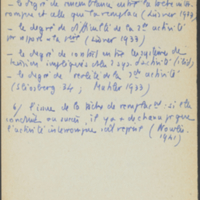 - le degré de ressemblance entre la tâche
rompue et celle qui la remplace (Lissner 1933)
- le degré de difficulté de la 2e activité
par rapport à la 1ère (Lissner 1933)
- le degré de contact entre les systèmes de
tension impliqués dans l'activité (ibid)
- le degré de réalité de la 2e activité
(Sliosberg 34 ; Mahler 1933)
6/ l'issue de la tâche de remplacement : si elle
conduit au succès, il y a de chances que
l'activité interrompue soit reprise (
1941)